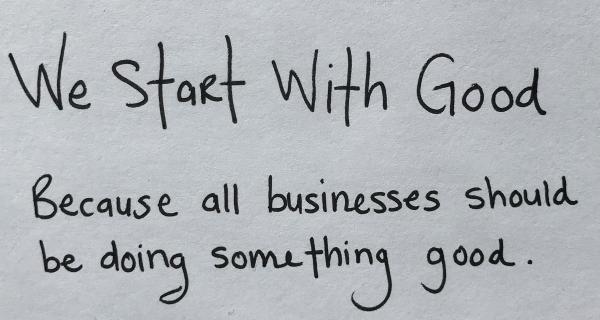 We Start With Good
Because all businesses should
be doing something good.